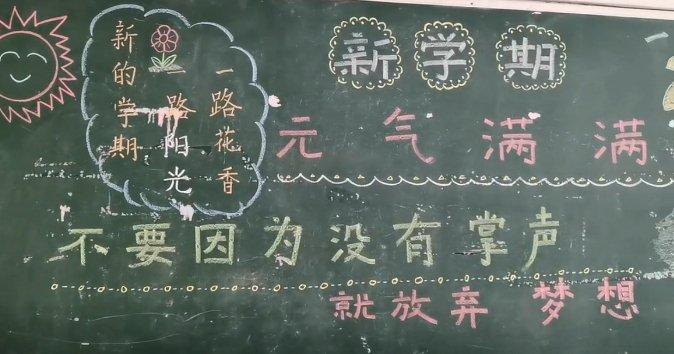 新学期
新的学期
一路阳光
一路花香
元气满满
不要因为没有掌声
就放弃梦想